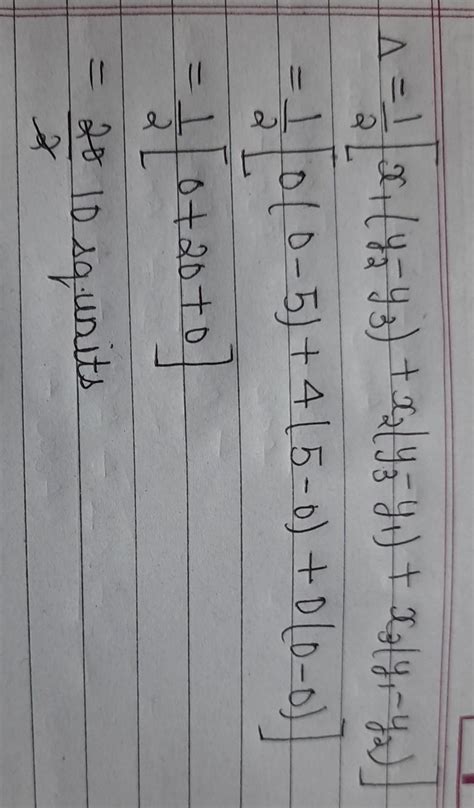 Δ = 1/2 [x₁(y₂-y₃) + x₂(y₃-y₁) + x₃(y₁-y₂)]
= 1/2 [0(0-5) + 4(5-0) + 0(0-0)]
= 1/2 [0+20+0]
= 20/2 10 sq.units